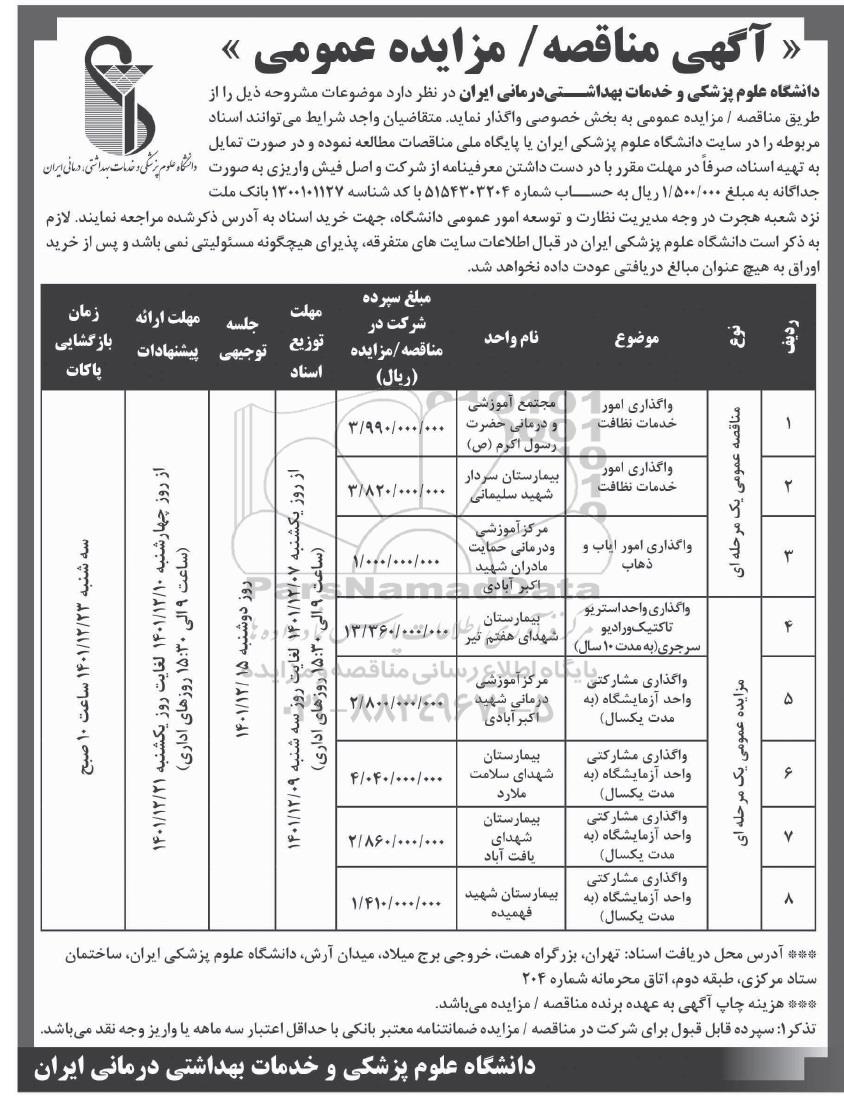 « آگهی مناقصه/ مزایده عمومی »
دانشگاه علوم پزشکی و خدمات بهداشتی،درمانی ایران
دانشگاه علوم پزشکی و خدمات بهداشــــتی‌درمانی ایران در نظر دارد موضوعات مشروحه ذیل را از
طریق مناقصه / مزایده عمومی به بخش خصوصی واگذار نماید. متقاضیان واجد شرایط می‌توانند اسناد
مربوطه را در سایت دانشگاه علوم پزشکی ایران یا پایگاه ملی مناقصات مطالعه نموده و در صورت تمایل
به تهیه اسناد، صرفاً در مهلت مقرر با در دست داشتن معرفینامه از شرکت و اصل فیش واریزی به صورت
جداگانه به مبلغ ۱/۵۰۰/۰۰۰ ریال به حســـاب شماره ۵۱۵۴۳۰۳۲۰۴ با کد شناسه ۱۳۰۰۱۰۱۱۲۷ بانک ملت
نزد شعبه هجرت در وجه مدیریت نظارت و توسعه امور عمومی دانشگاه، جهت خرید اسناد به آدرس ذکرشده مراجعه نمایند. لازم
به ذکر است دانشگاه علوم پزشکی ایران در قبال اطلاعات سایت های متفرقه، پذیرای هیچگونه مسئولیتی نمی باشد و پس از خرید
اوراق به هیچ عنوان مبالغ دریافتی عودت داده نخواهد شد.
ردیف
نوع
موضوع
نام واحد
مبلغ سپرده
شرکت در
مناقصه/مزایده
(ریال)
مهلت
توزیع
اسناد
جلسه
توجیهی
مهلت ارائه
پیشنهادات
زمان
بازگشایی
پاکات
مناقصه عمومی یک مرحله ای
۱
واگذاری امور
خدمات نظافت
مجتمع آموزشی
و درمانی حضرت
رسول اکرم (ص)
۳/۹۹۰/۰۰۰/۰۰۰
۲
واگذاری امور
خدمات نظافت
بیمارستان سردار
شهید سلیمانی
۳/۸۲۰/۰۰۰/۰۰۰
۳
واگذاری امور ایاب و
ذهاب
مرکز آموزشی
ودرمانی حمایت
مادران شهید
اکبر آبادی
۱/۰۰۰/۰۰۰/۰۰۰
مزایده عمومی یک مرحله ای
۴
واگذاری واحد استریو
تاکتیک ورادیو
سرجری(به مدت ۱۰ سال)
بیمارستان
شهدای هفتم تیر
۱۳/۳۶۰/۰۰۰/۰۰۰
۵
واگذاری مشارکتی
واحد آزمایشگاه (به
مدت یکسال)
مرکزآموزشی
درمانی شهید
اکبرآبادی
۲/۸۰۰/۰۰۰/۰۰۰
۶
واگذاری مشارکتی
واحد آزمایشگاه (به
مدت یکسال)
بیمارستان
شهدای سلامت
ملارد
۴/۰۴۰/۰۰۰/۰۰۰
۷
واگذاری مشارکتی
واحد آزمایشگاه (به
مدت یکسال)
بیمارستان
شهدای
یافت آباد
۲/۸۶۰/۰۰۰/۰۰۰
۸
واگذاری مشارکتی
واحد آزمایشگاه (به
مدت یکسال)
بیمارستان شهید
فهمیده
۱/۴۱۰/۰۰۰/۰۰۰
از روز یکشنبه ۱۴۰۱/۱۲/۰۷ لغایت روز سه شنبه ۱۴۰۱/۱۲/۰۹
(ساعت ۹ الی ۱۵:۳۰ روزهای اداری)
روز دوشنبه ۱۴۰۱/۱۲/۱۵
از روز چهارشنبه ۱۴۰۱/۱۲/۱۰ لغایت روز یکشنبه ۱۴۰۱/۱۲/۲۱
(ساعت ۹ الی ۱۵:۳۰ روزهای اداری)
سه شنبه ۱۴۰۱/۱۲/۲۳ ساعت ۱۰ صبح
ParsNamadData
پایگاه اطلاع رسانی مناقصه و مزایده
۰۲۱-۸۸۳۴۹۶۷۰-۵
*** آدرس محل دریافت اسناد: تهران، بزرگراه همت، خروجی برج میلاد، میدان آرش، دانشگاه علوم پزشکی ایران، ساختمان
ستاد مرکزی، طبقه دوم، اتاق محرمانه شماره ۲۰۴
*** هزینه چاپ آگهی به عهده برنده مناقصه / مزایده می‌باشد.
تذکر۱: سپرده قابل قبول برای شرکت در مناقصه / مزایده ضمانتنامه معتبر بانکی با حداقل اعتبار سه ماهه یا واریز وجه نقد می‌باشد.
دانشگاه علوم پزشکی و خدمات بهداشتی درمانی ایران